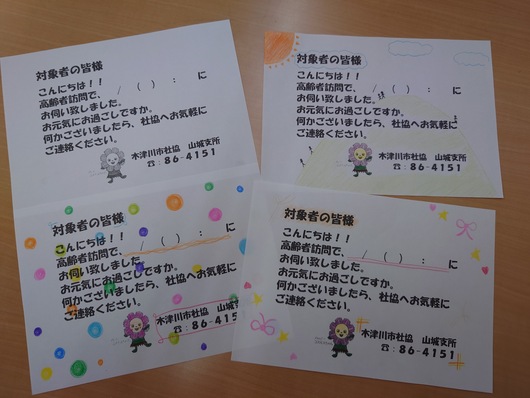 対象者の皆様
こんにちは！！
高齢者訪問で、　／　（　）　：　に
お伺い致しました。
お元気にお過ごしですか。
何かございましたら、社協へお気軽に
ご連絡ください。
木津川市社協　山城支所
☎：８６-４１５１
対象者の皆様
こんにちは！！
高齢者訪問で、　／　（　）　：　に
お伺い致しました。
お元気にお過ごしですか。
何かございましたら、社協へお気軽に
ご連絡ください。
木津川市社協　山城支所
☎：８６-４１５１
対象者の皆様
こんにちは！！
高齢者訪問で、　／　（　）　：　に
お伺い致しました。
お元気にお過ごしですか。
何かございましたら、社協へお気軽に
ご連絡ください。
木津川市社協　山城支
☎：８６-４１５
対象者の皆様
こんにちは！！
高齢者訪問で、　／　（　）　：　に
お伺い致しました。
お元気にお過ごしですか。
何かございましたら、社協へお気軽に
ご連絡ください。
木津川市社協　山城支所
☎：８６-４１５１